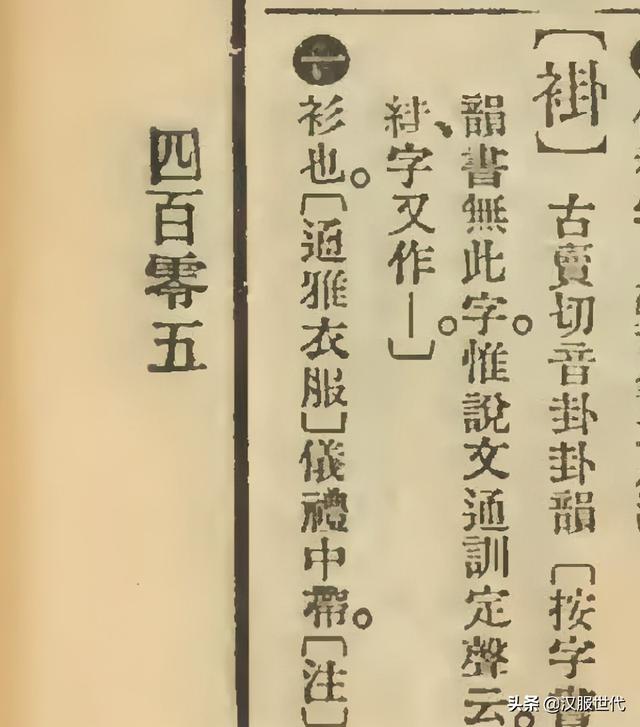 〔褂〕古賣切音卦卦韻〔按字書
韻書無此字。惟說文通訓定聲云。
絓、字又作｜。〕
一衫也。〔通雅衣服〕儀禮中帶。〔注〕
四百零五
头条 @汉服世代